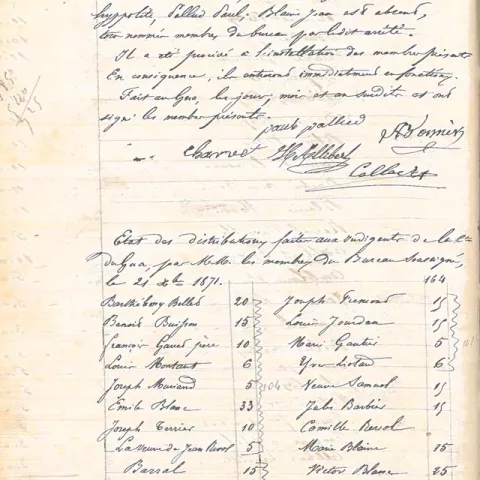 hyppolite, Pallud Paul, Blain Jean est absent,
tous nommés membres du bureau par ledit arrêté.
Il a été procédé à l'installation des membres présents
En conséquence, ils entreront immédiatement en fonctions.
Fait au Gua, les jour, mois et an susdits et ont
signé les membres présents.
paul pallud
Charvet
Etat des distributions faites aux indigents de la Cne
du Gua, par M.M. les membres du Bureau soussignés,
le 21 Xbre 1871.
164
Barthélemy Bellet 20 Joseph Fremond 15
Benoit Buisson 15 Louis Jourdan 15
françois Gaud père 10 Marie Gautié 5
Louis Montant 6 6
Joseph 5 104 Veuve Samuel 15
Emile Blanc 33 Jule Barbier 15
Joseph Terrier 10 Camille
La Veuve de Jean 5 Marie Blaine 15
Barral 15 Victor Blanc 25